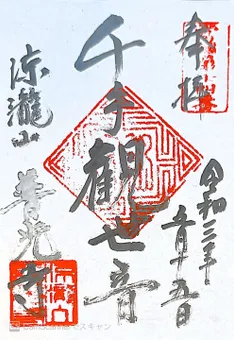 奉拝
令和三年
五月十五日
千手観世音
涼瀧山
普光寺
スキャン